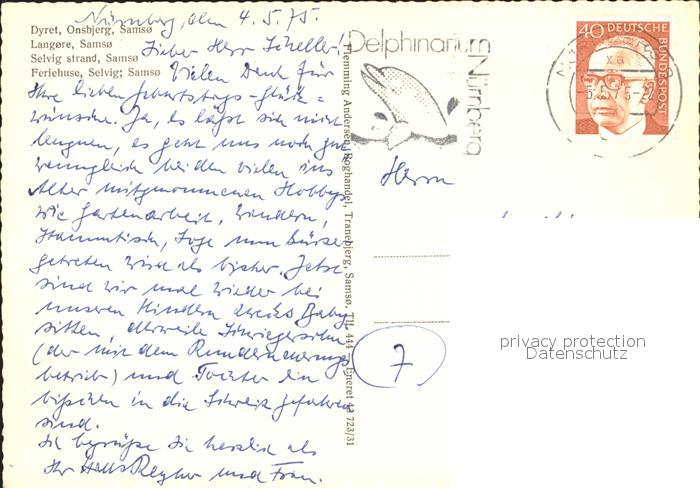 Nürnberg, den 4.5.75.
Dyret, Onsbjerg, Samsø
Langøre, Samsø
Selvig strand, Samsø
Feriehuse, Selvig; Samsø
Lieber Herr Scheller!
Vielen Dank für
Ihre lieben Geburtstags-Glück=
wünsche. Ja, es läßt sich nicht
leugnen, es geht uns noch gut
wenngleich bei den vielen ins
Alter mitgenommenen Hobbys
wie Gartenarbeit, Wandern,
Stammtisch, kürzer
getreten wird als bisher. Jetzt
sind wir mal wieder bei
unseren Kindern Baby
sitten, derweile Schwiegersohn
(der mit dem Runderneuerungs
betrieb) und Tochter ein
bißchen in die Schweiz gefahren
sind.
Es begrüße Sie herzlich als
Ihr und Frau.
Flemming Andersen, Boghandel, Tranebjerg, Samsø. Tlf. 444 Eneret 43 723/31
Delphinarium
Nürnberg
40 DEUTSCHE
BUNDESPOST
-5.5.75-22
Herrn
7
privacy protection
Datenschutz